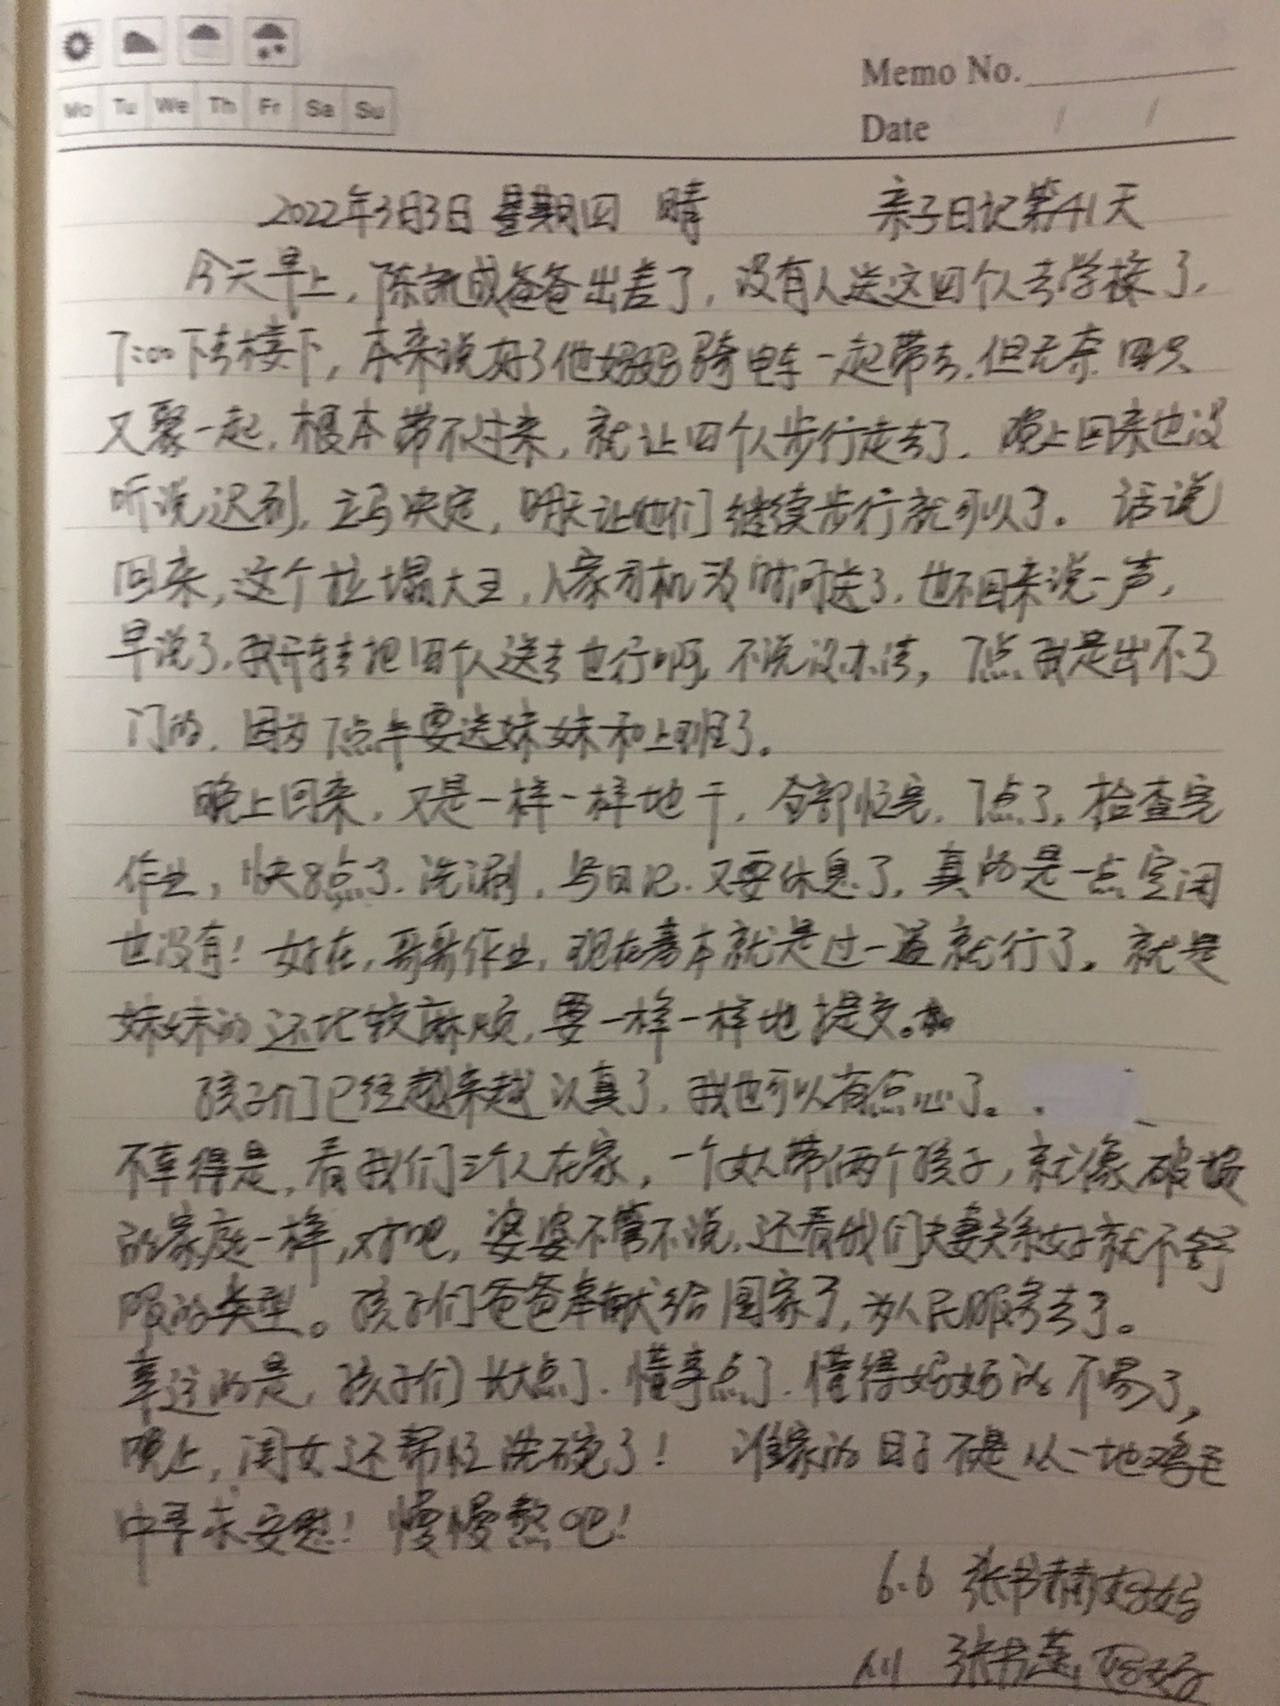 Mo Tu We Th Fr Sa Su
Memo No.
Date / /
2022年3月3日 星期四 晴 亲子日记第41天
今天早上,陈凯成爸爸出差了,没有人送这四个人去学校了,
7:00下去楼下,本来说好了他妈妈骑电车一起带去,但无奈四只
又聚一起,根本带不过来,就让四个人步行走去了。晚上回来也没
听说迟到,立马决定,明天让他们继续步行就可以了。话说
回来,这个拉塌大王,人家司机没时间送了,也不回来说一声,
早说了,我开车去把四个人送去也行啊,不说没办法,7点我是出不了
门的,因为7点半要送妹妹和上班了。
晚上回来,又是一样一样地干,全部忙完,7点了,检查完
作业,快8点了,洗涮,写日记,又要休息了,真的是一点空闲
也没有!好在,哥哥作业,现在基本就是过一遍就行了。就是
妹妹的还比较麻烦,要一样一样地提交。
孩子们已经越来越认真了,我也可以省点心了。
不幸得是,看我们三个人在家,一个女人带俩个孩子,就像破坡
的家庭一样,对吧,婆婆不管不说,还看我们夫妻关系好就不舒
服的类型。孩子们爸爸奉献给国家了,为人民服务去了。
幸运的是,孩子们长大点了,懂事点了,懂得妈妈的不易了,
晚上,闺女还帮忙洗碗了! 谁家的日子不是从一地鸡毛
中寻求安慰!慢慢熬吧!
6.6 张书 妈妈
张书 妈妈